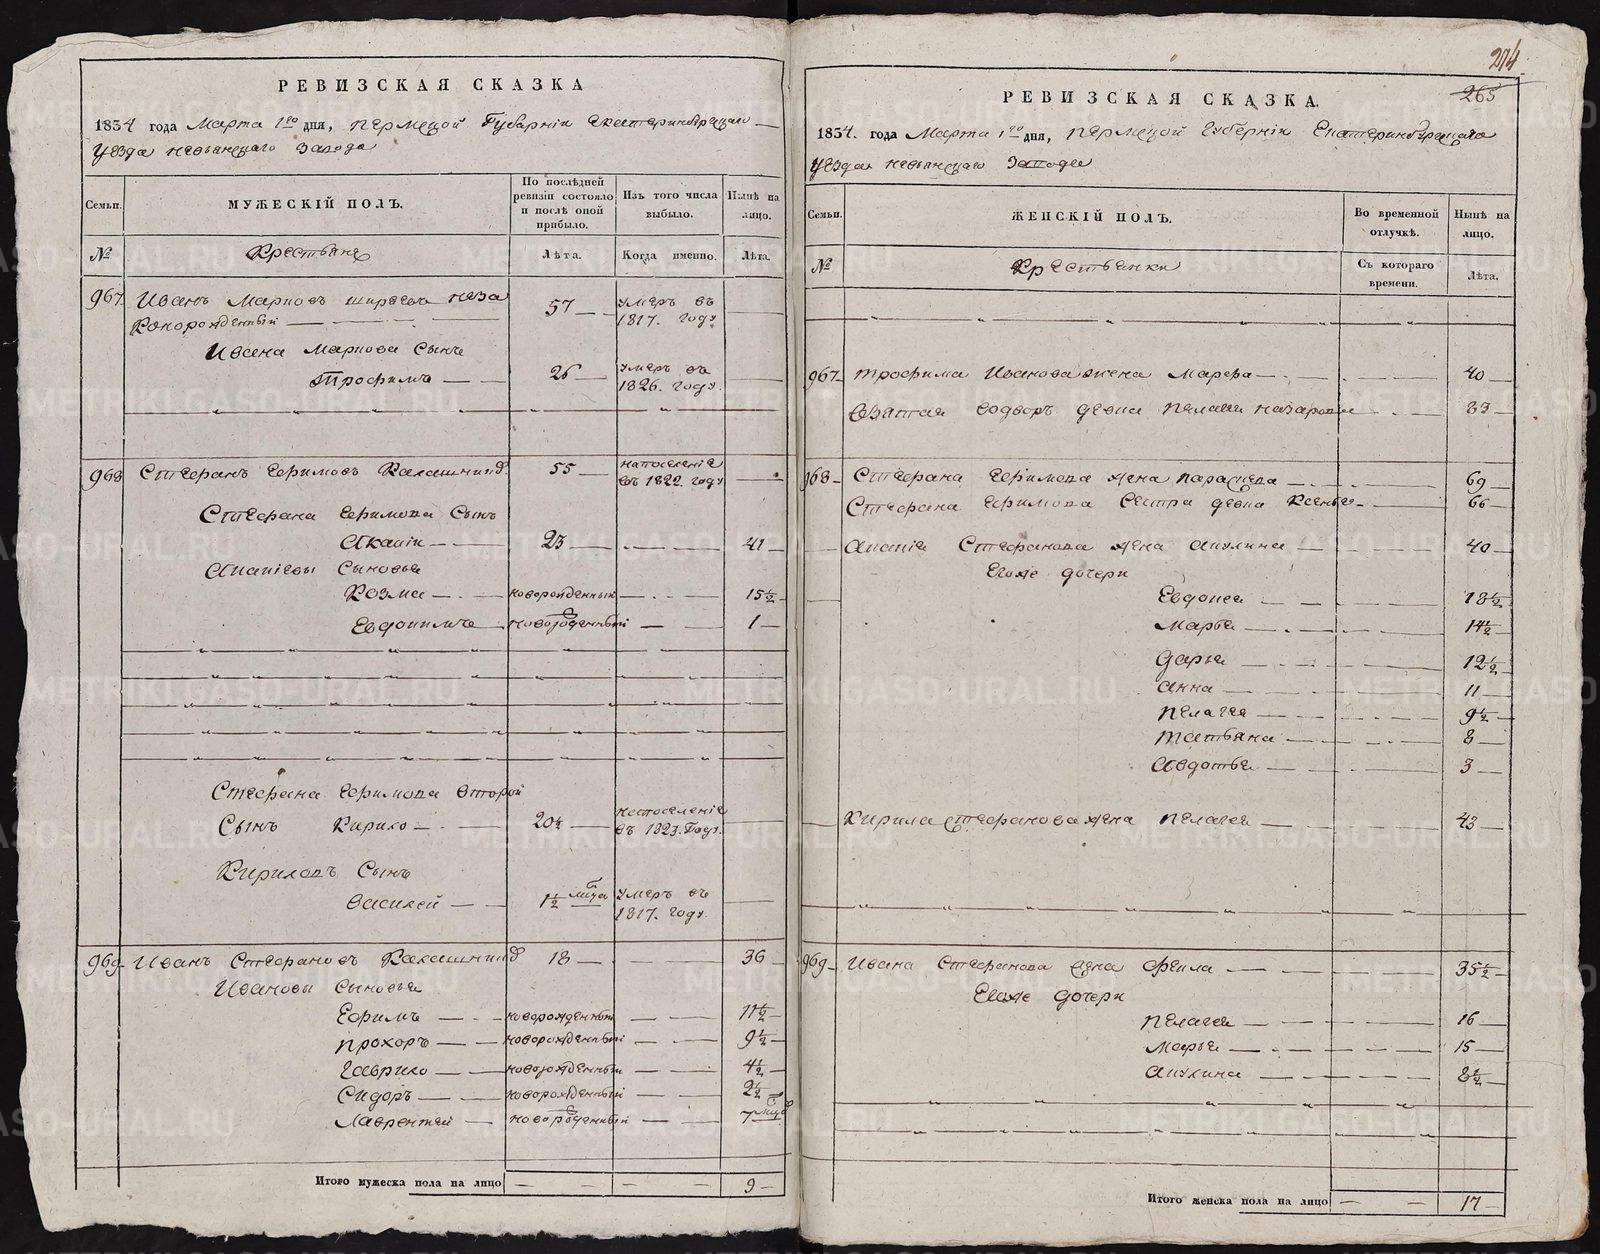 РЕВИЗСКАЯ СКАЗКА
1834 года Марта 1го дня, Пермской Губерніи Екатеринбурскаго
уезда невьянскаго завода
Семьи.
МУЖЕСКІЙ ПОЛЪ.
По послѣдней ревизіи состояло и послѣ оной прибыло.
Изъ того числа выбыло.
Нынѣ на лицо.
№
Крестьяне
Лѣта.
Когда именно.
Лѣта.
967. Иванъ Марковъ неза 57 умеръ въ
конорожденный 1817. году
Ивана Маркова Сынъ
Трофимъ 26 умеръ въ
1826. году.
968 Стефанъ Ефимовъ Калашниковъ 55 напоселеніе
въ 1822 году
Стефана Ефимова Сынъ
23 41
Ананіевы Сыновья
Козма новорожденный 15½
Евдокимъ новорожденный 1
Стефана Ефимова второй
Сынъ Кирило 20½ напоселеніе
въ 1823. году.
Кириловъ Сынъ
Василей 1½ мѣсца умеръ въ
1817. году.
969. Иванъ Стефановъ Калашниковъ 18 36
Ивановы Сыновья
Ефимъ новорожденный 11½
Прохоръ новорожденный 9½
Гаврило новорожденный 4½
Сидоръ новорожденный 2½
Лаврентей новорожденный 7 мѣсцовъ
Итого мужеска пола на лицо 9
274
265
РЕВИЗСКАЯ СКАЗКА.
1834. года Марта 1го дня, Пермской Губерніи Екатеринбурскаго
уезда невьянскаго завода
Семьи.
ЖЕНСКІЙ ПОЛЪ.
Во временной отлучкѣ.
Нынѣ на лицо.
№
Крестьянки
Съ котораго времени.
Лѣта.
967 Трофима Иванова жена Марфа 40
взятая водворъ девка Пелагея Назарова
968 Стефана Ефимова жена Параскева 69
Стефана Ефимова Сестра девка Ксенья 66
Ананіе Стефанова жена Акулина 40
Егоже дочери
Евдокея 18½
Марья 14½
Дарья 12½
Анна 11
Пелагея 9½
Татьяна 8
Авдотья 3
Кирила Стефанова жена Пелагея 43
969 Ивана Стефанова жена Фекла 35½
Егоже дочери
Пелагея 16
Марья 15
Акулина 8½
Итого женска пола на лицо 17
METRIKI.GASO-URAL.RU